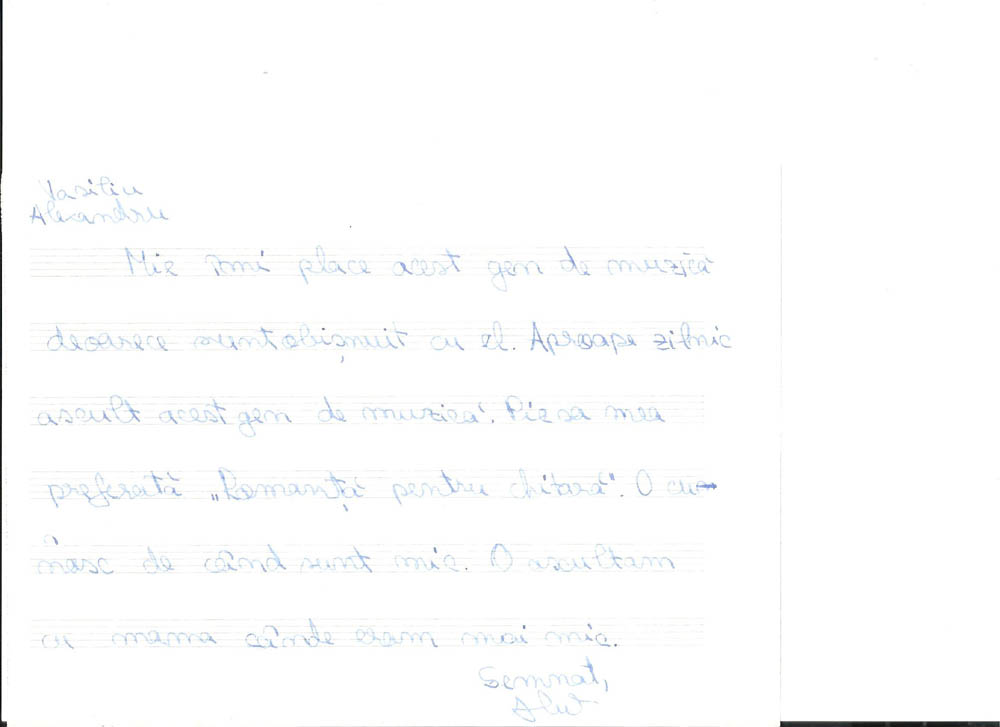 Vasiliu
Alexandru
Mie îmi place acest gen de muzică
deoarece sunt obișnuit cu el. Aproape zilnic
ascult acest gen de muzică. Piesa mea
preferată „Romanță pentru chitară". O cu-
nasc de când sunt mic. O ascultam
cu mama cânde eram mai mic.
Semnat,